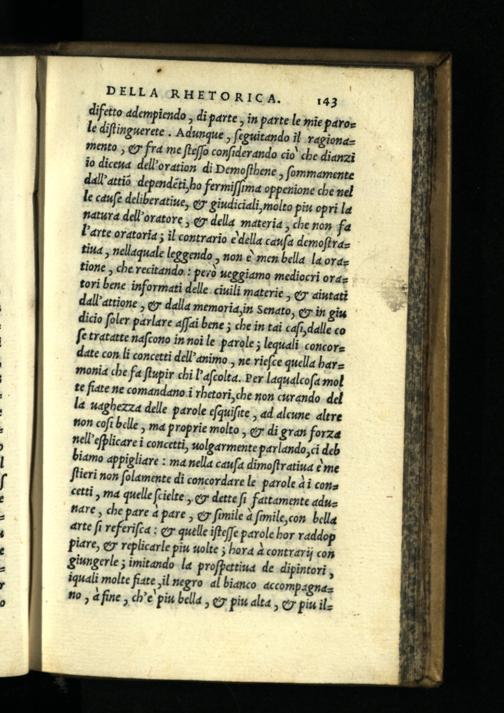 DELLA RHETORICA. 143
difetto adempiendo, di parte, in parte le mie paro=
le distinguerete. Adunque, seguitando il ragiona=
mento, & fra me stesso considerando ciò che dianzi
io diceua dell'oration di Demosthene, sommamente
dall'attiō dependēti, ho fermissima oppenione che nel
le cause deliberatiue, & giudiciali, molto piu opri la
natura dell'oratore, & della materia, che non fa
l'arte oratoria; il contrario è della causa demostra=
tiua, nellaquale leggendo, non è men bella la ora=
tione, che recitando: però ueggiamo mediocri ora=
tori bene informati delle ciuili materie, & aiutati
dall'attione, & dalla memoria, in Senato, & in giu
dicio soler parlare assai bene; che in tai casi, dalle co
se tratatte nascono in noi le parole; lequali concor=
date con li concetti dell'animo, ne riesce quella har=
monia che fa stupir chi l'ascolta. Per laqualcosa mol
te fiate ne comandano i rhetori, che non curando del
la uaghezza delle parole esquisite, ad alcune altre
non cosi belle, ma proprie molto, & di gran forza
nell'esplicare i concetti, uolgarmente parlando, ci deb
biamo appigliare: ma nella causa dimostratiua è me
stieri non solamente di concordare le parole à i con=
cetti, ma quelle scielte, & dette si fattamente adu=
nare, che pare à pare, & simile à simile, con bella
arte si referisca: & quelle istesse parole hor raddop
piare, & replicarle piu uolte; hora à contrarij con
giungerle; imitando la prospettiua de dipintori,
iquali molte fiate, il negro al bianco accompagna=
no, à fine, ch'e piu bella, & piu alta, & piu il=